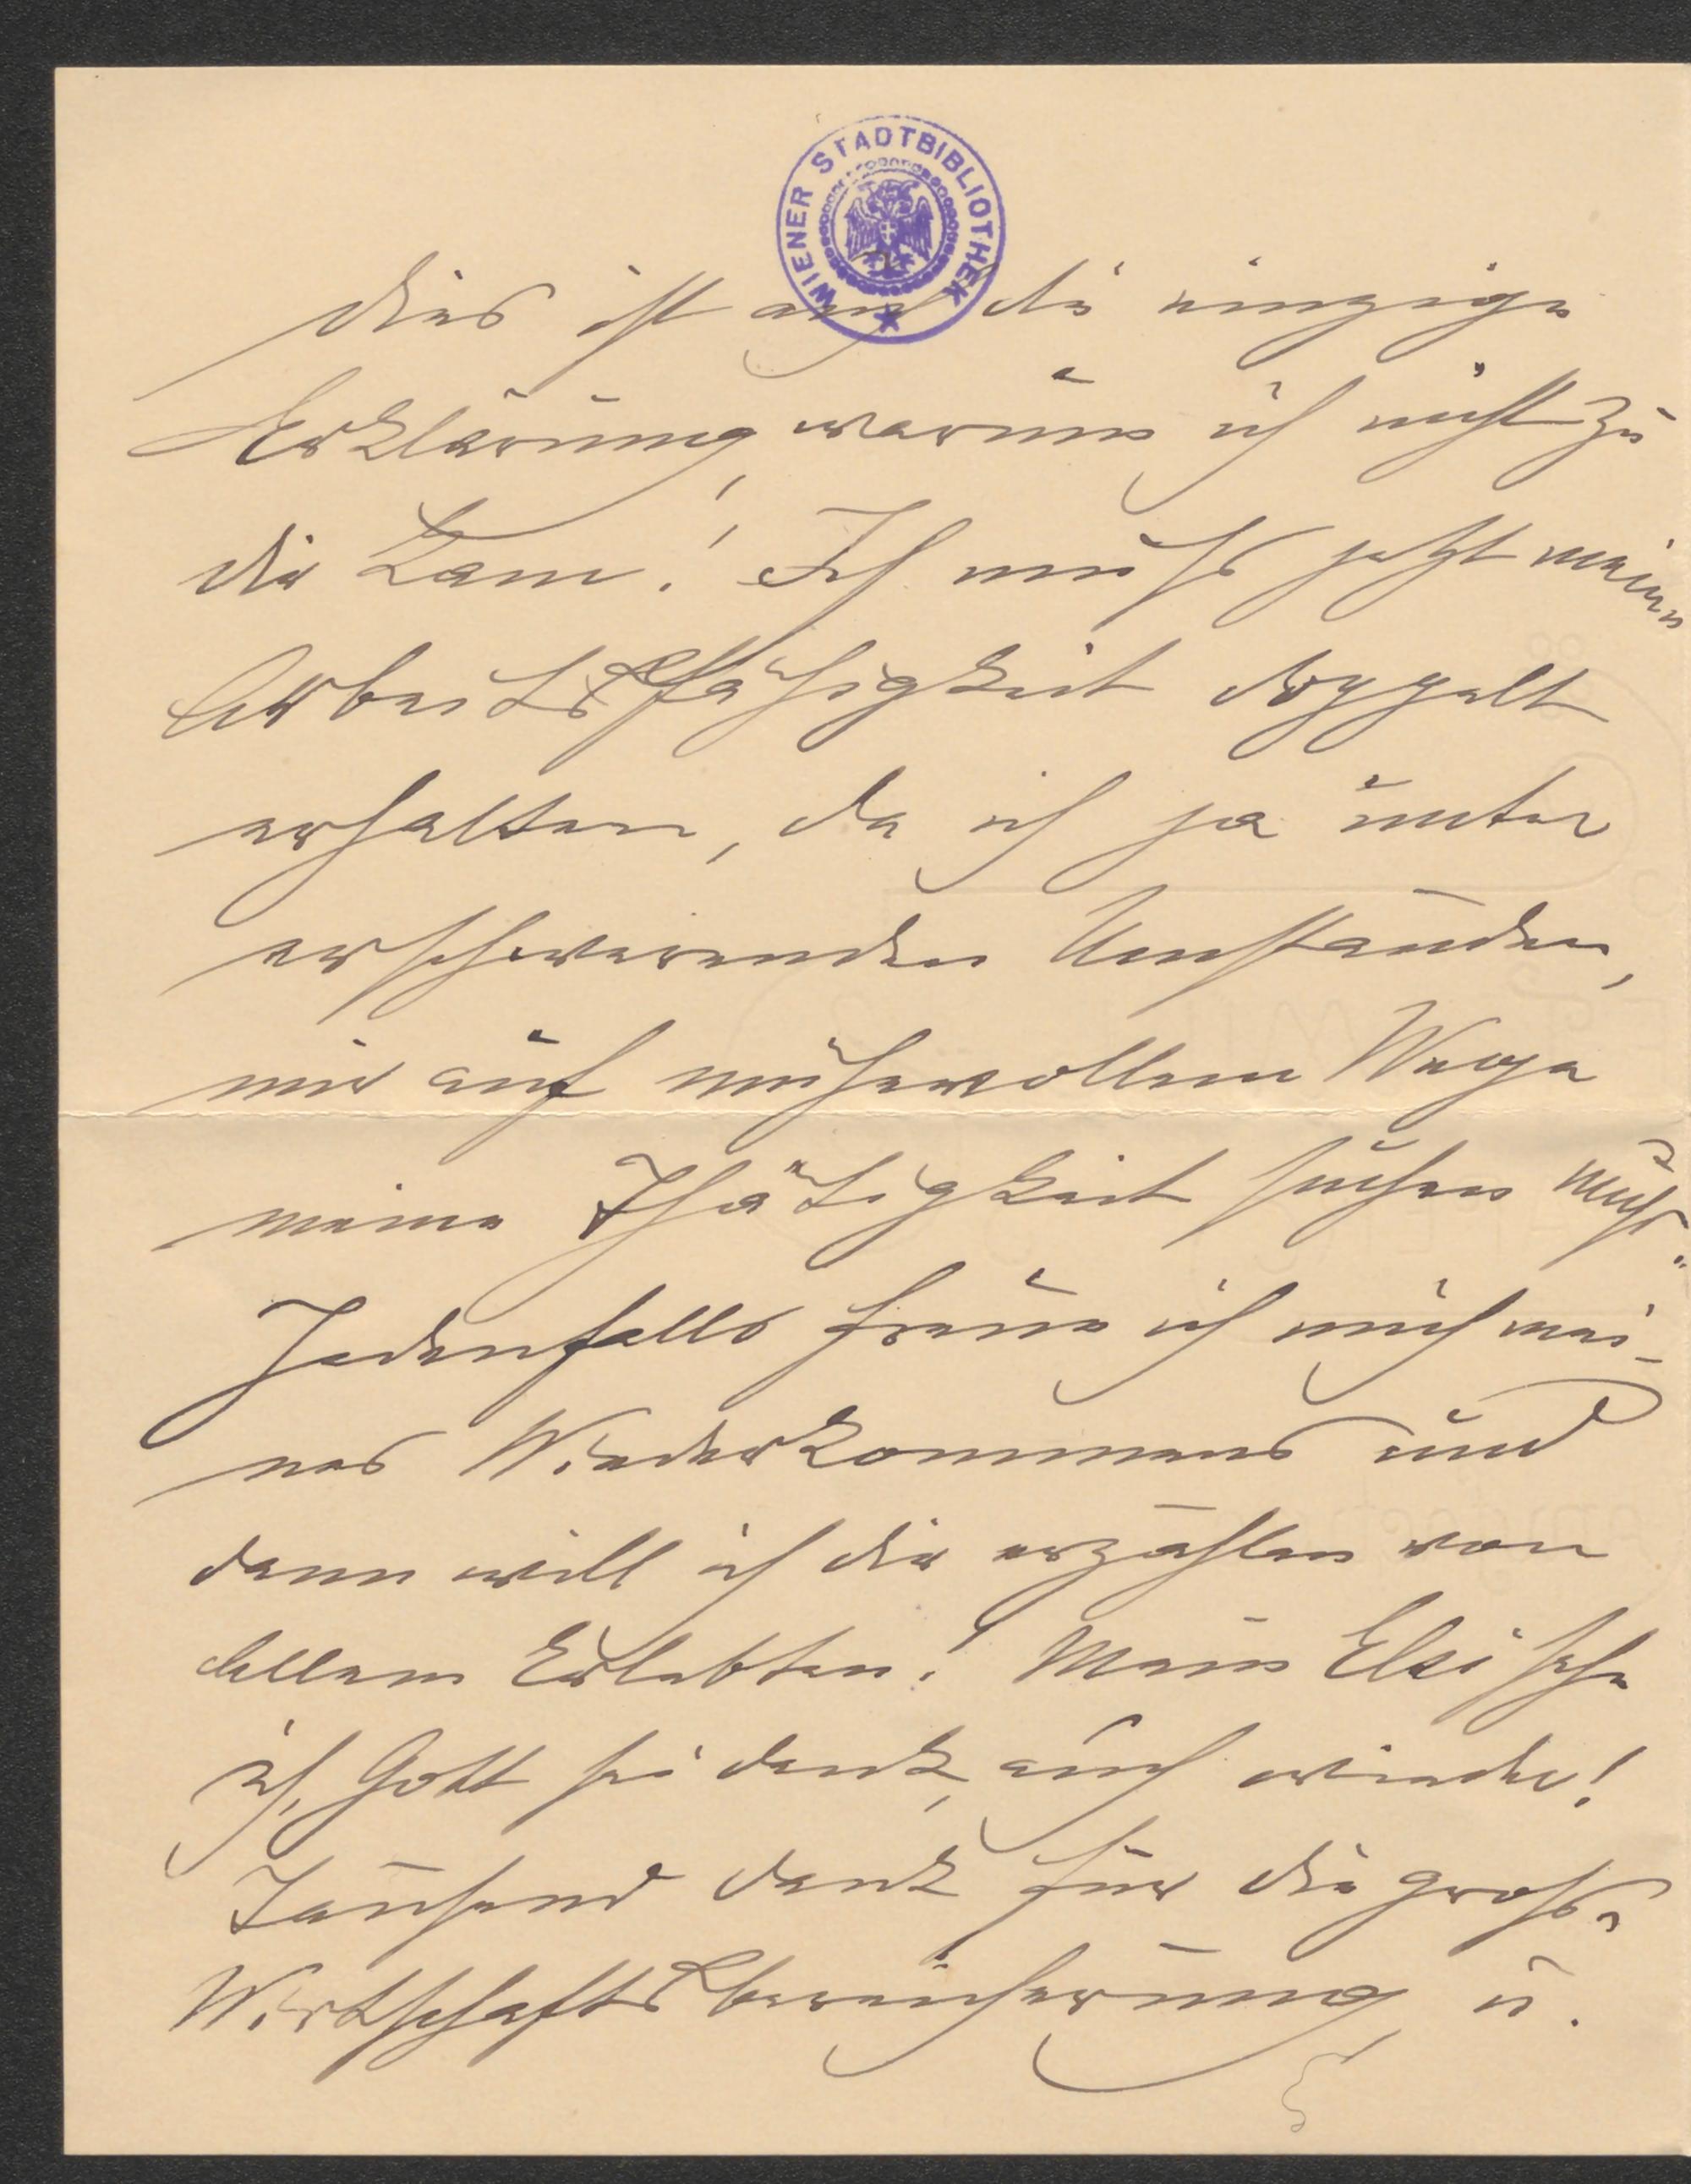 WIENER STADTBIBLIOTHEK
dies ist auch die einzige
Erklärung, warum ich nicht zu
dir kam! Ich muß jetzt meine
Arbeitsfähigkeit doppelt
erhalten, da ich ja unter
erschwerenden Umständen,
mir auf mühevollem Wege
meine Thätigkeit suchen muß.
Jedenfalls freue ich mich mei-
nes Wiederkommens und
dann will ich dir erzählen von
Allem Erlebten! Meine Elsi sehe
ich, Gott sei dank, auch wieder!
Tausend dank für die große
Wirtschaftsbereicherung u.